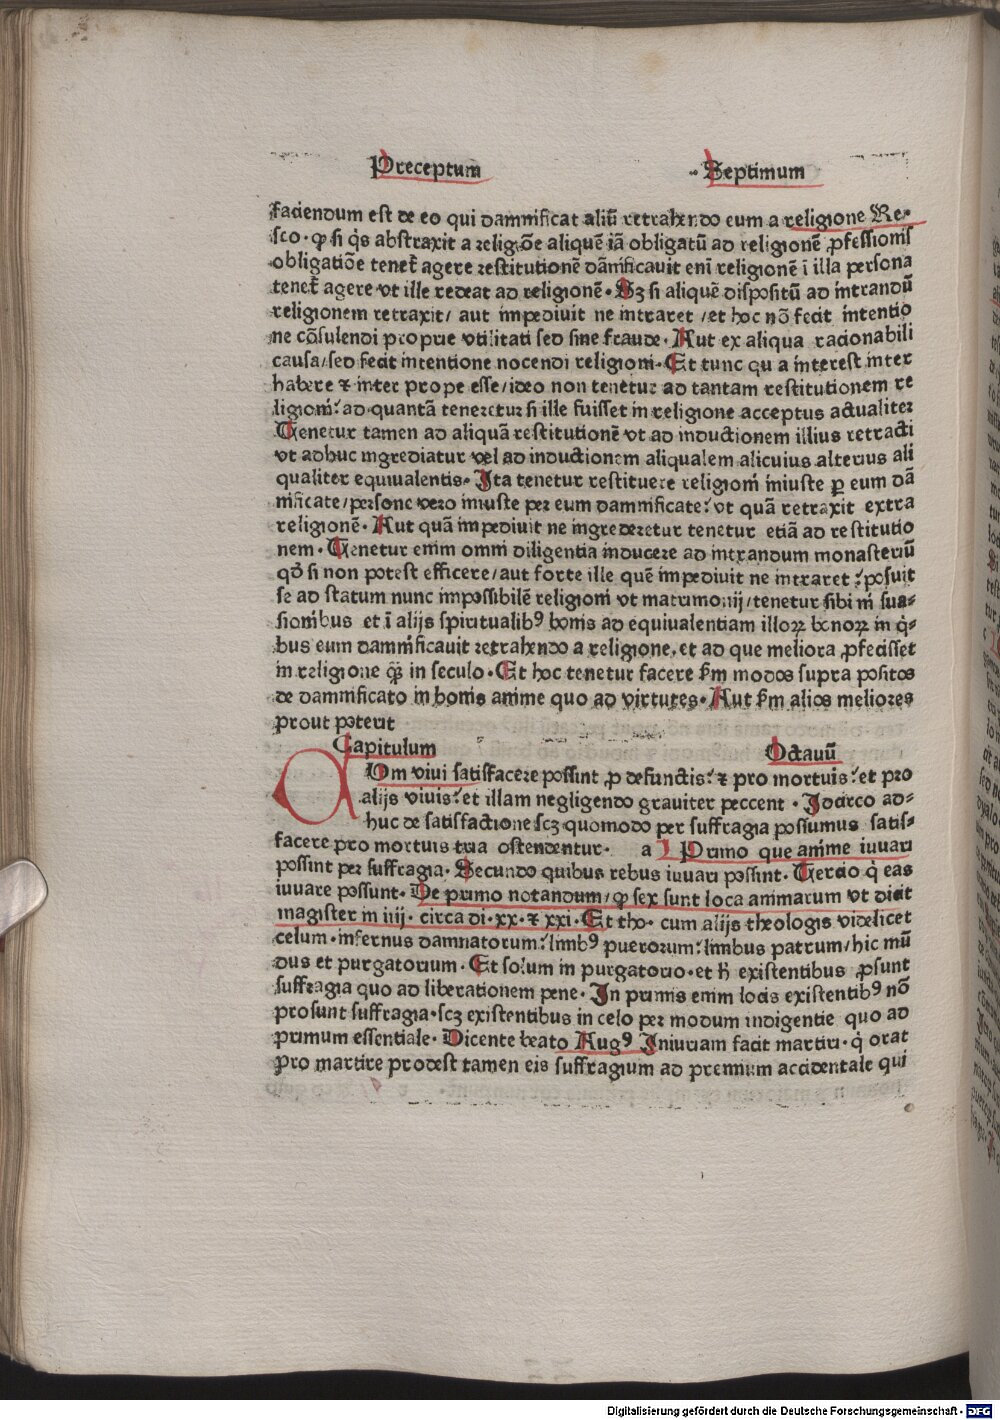 Preceptum Septimum
faciendum est de eo qui damnificat aliū retrahendo eum a religione Re⸗
sco · ꝙ si q̇s abstraxit a religiōe aliquē iā obligatū ad religionē ꝓfessionis
obligatiōe tenet̄ agere restitutionē dānificauit eni religionē ī illa persona
tenet̄ agere vt ille redeat ad religionē · Sꝫ si aliquē dispositū ad intrandū
religionem retraxit/ aut impediuit ne intraret /et hoc nō fecit intentio
ne cōsulendi proprie vtilitati sed sine fraude · Aut ex aliqua racionabili
causa/sed fecit intentione nocendi religioni · Et tunc qu a interest inter
habere ⁊ inter prope esse/ideo non tenetur ad tantam restitutionem re
ligioni? ad quantā teneretur si ille fuisset in religione acceptus actualiter
Tenetur tamen ad aliquā restitutionē vt ad inductionem illius retracti
vt adhuc ingrediatur vel ad inductionem aliqualem alicuius alterius ali
qualiter equiualentis · Ita tenetur restituere religioni iniuste ꝑ eum dā
nificate/persone vero iniuste per eum damnificate? vt quā retraxit extra
religionē · Aut quā impediuit ne ingrederetur tenetur etiā ad restitutio
nem · Tenetur enim omni diligentia inducere ad intrandum monasteriū
qd̓ si non potest efficere/aut forte ille quē impediuit ne intraret? posuit
se ad statum nunc impossibilē religioni vt matrimonij/tenetur sibi in sua⸗
sionibus et ī alijs spiritualibꝰ bonis ad equiualentiam illoꝝ bonoꝝ in q̇⸗
bus eum damnificauit retrahendo a religione, et ad que meliora ꝓfecisset
in religione q̄ꝫ in seculo · Et hoc tenetur facere ẜm modos supra positos
de damnificato in bonis anime quo ad virtutes · Aut ẜm alios meliores
prout poterit
Capitulum Octauū
Om viui satisfacere possint ꝓ defunctis? ⁊ pro mortuis? et pro
alijs viuis? et illam negligendo grauiter peccent · Idcirco ad⸗
huc de satisfactione scꝫ quomodo per suffragia possumus satis⸗
facere pro mortuis tria ostendentur · a Primo que anime iuuari
possint per suffragia · Secundo quibus rebus iuuari possint · Tercio q̇ eas
iuuare possunt · De primo notandum/ꝙ sex sunt loca animarum vt dicit
magister in iiij · circa di · xx · ⁊ xxi · Et tho · cum alijs theologis videlicet
celum · infernus damnatorum? limbꝰ puerorum? limbus patrum/hic mū
dus et purgatorium · Et solum in purgatorio · et h̄ existentibus ꝓsunt
suffragia quo ad liberationem pene · In primis enim locis existentibꝰ nō
prosunt suffragia · scꝫ existentibus in celo per modum indigentie quo ad
primum essentiale · Dicente beato Augꝰ Iniuriam facit martiri · q̇ orat
pro martire prodest tamen eis suffragium ad premium accidentale qui
Digitalisierung gefördert durch die Deutsche Forschungsgemeinschaft - DFG